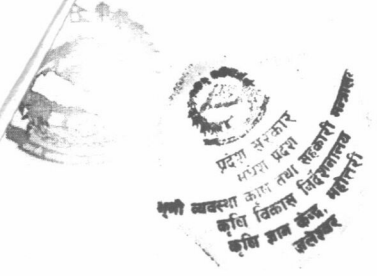 प्रदेश सरकार
मधेश प्रदेश
भूमी व्यवस्था कृषि तथा सहकारी मन्त्रालय
कृषि विकास निर्देशनालय
कृषि ज्ञान केन्द्र, महोत्तरी
जलेश्वर